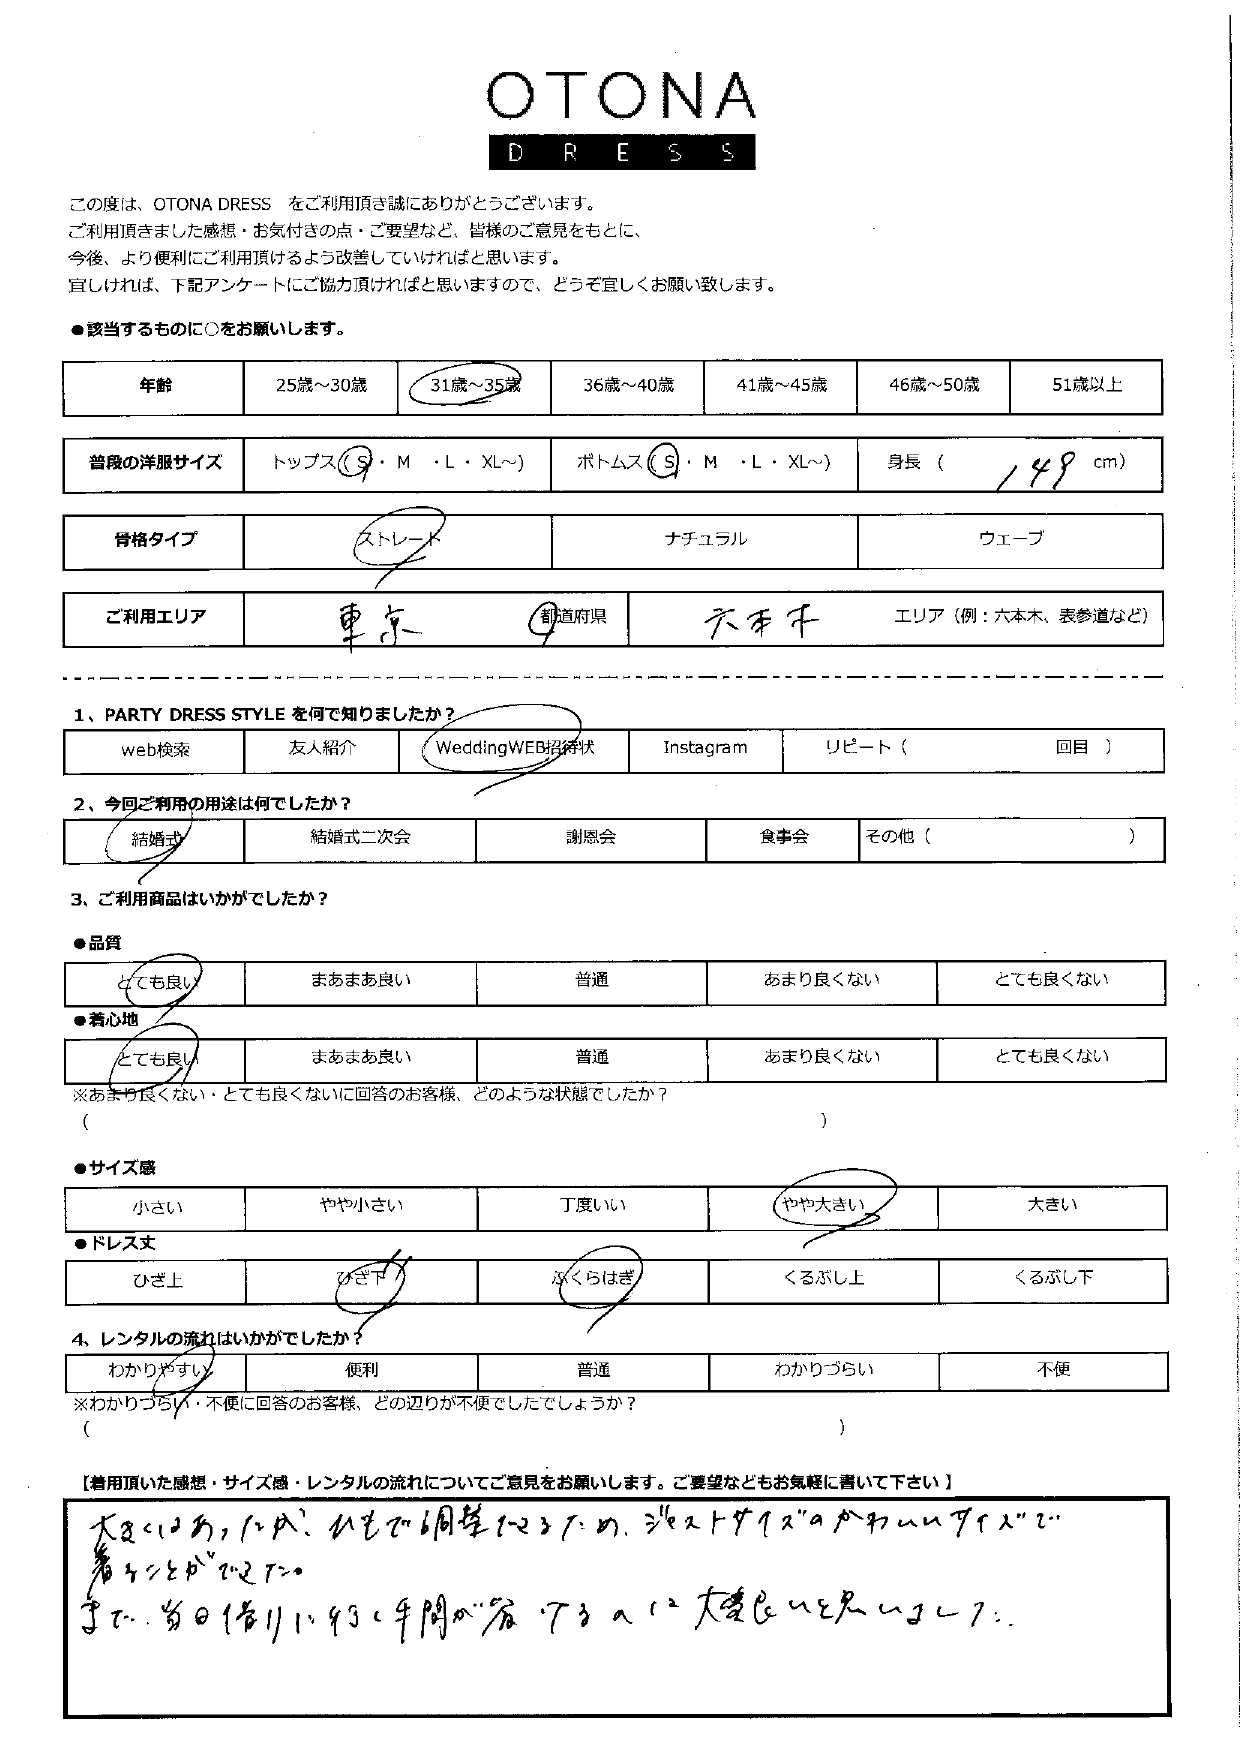 OTONA
DRESS
この度は、OTONA DRESS をご利用頂き誠にありがとうございます。
ご利用頂きました感想・お気付きの点・ご要望など、皆様のご意見をもとに、
今後、より便利にご利用頂けるよう改善していければと思います。
宜しければ、下記アンケートにご協力頂ければと思いますので、どうぞ宜しくお願い致します。
●該当するものに○をお願いします。
年齢 25歳～30歳 31歳～35歳 36歳～40歳 41歳～45歳 46歳～50歳 51歳以上
普段の洋服サイズ トップス（S・M ・L・XL～） ボトムス（S・M ・L・XL～） 身長（ 149 cm）
骨格タイプ ストレート ナチュラル ウェーブ
ご利用エリア 東京 都道府県 六本木 エリア（例：六本木、表参道など）
1、PARTY DRESS STYLE を何で知りましたか？
web検索 友人紹介 WeddingWEB招待状 Instagram リピート（ 回目 ）
2、今回ご利用の用途は何でしたか？
結婚式 結婚式二次会 謝恩会 食事会 その他（ ）
3、ご利用商品はいかがでしたか？
●品質
とても良い まあまあ良い 普通 あまり良くない とても良くない
●着心地
とても良い まあまあ良い 普通 あまり良くない とても良くない
※あまり良くない・とても良くないに回答のお客様、どのような状態でしたか？
（ ）
●サイズ感
小さい やや小さい 丁度いい やや大きい 大きい
●ドレス丈
ひざ上 ひざ下 ふくらはぎ くるぶし上 くるぶし下
4、レンタルの流れはいかがでしたか？
わかりやすい 便利 普通 わかりづらい 不便
※わかりづらい・不便に回答のお客様、どの辺りが不便でしたでしょうか？
（ ）
【着用頂いた感想・サイズ感・レンタルの流れについてご意見をお願いします。ご要望などもお気軽に書いて下さい】
大きくはあったが、ひもで調整できるため、ジャストサイズのかわいいサイズで
着ることができた。
また、当日借りに行く手間が省けるのは大変良いと思いました。